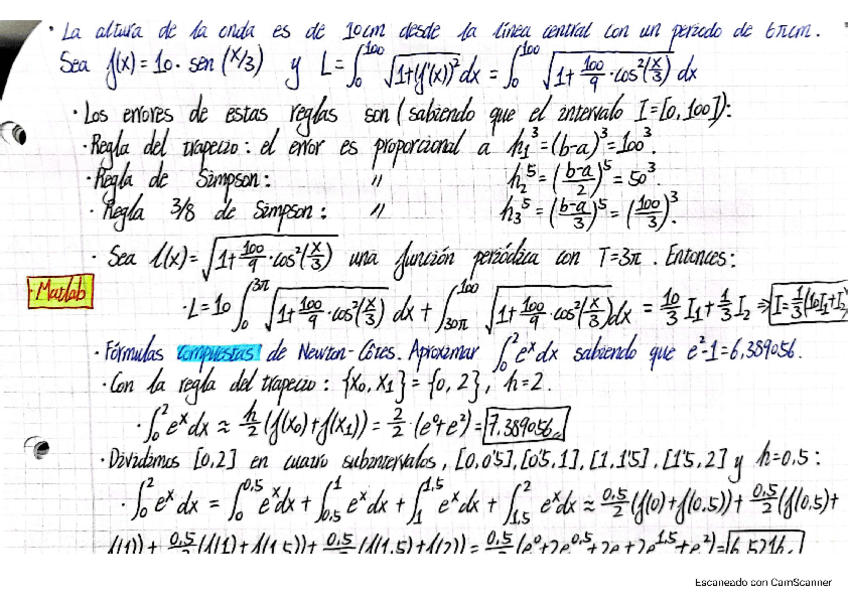 · La altura de la onda es de 10cm desde la línea central con un periodo de 6πcm.
Sea f(x)=10·sen(x/3) y L=∫₀¹⁰⁰ √(1+(f'(x))²) dx = ∫₀¹⁰⁰ √(1+100/9·cos²(x/3)) dx
· Los errores de estas reglas son (sabiendo que el intervalo I=[0,100]):
· Regla del trapecio: el error es proporcional a h₁³=(b-a)³=100³.
· Regla de Simpson: " h₂⁵=((b-a)/2)⁵=50³.
· Regla 3/8 de Simpson: " h₃⁵=((b-a)/3)⁵=(100/3)³.
· Sea l(x)=√(1+100/9·cos²(x/3)) una función periódica con T=3π. Entonces:
· Matlab
· L=10∫₀^3π √(1+100/9·cos²(x/3)) dx + ∫_30π^100 √(1+100/9·cos²(x/3)) dx = 10/3 I₁+1/3 I₂ ⇒ I=1/3(10I₁+I₂)
· Fórmulas compuestas de Newton-Côtes. Aproximar ∫₀² eˣdx sabiendo que e²-1=6,389056.
· Con la regla del trapecio: {x₀, x₁}={0, 2}, h=2.
· ∫₀² eˣdx ≈ h/2 (f(x₀)+f(x₁)) = 2/2·(e⁰+e²)=7.389056.
· Dividimos [0,2] en cuatro subintervalos, [0,0'5],[0'5,1],[1,1'5],[1'5,2] y h=0,5:
· ∫₀² eˣdx = ∫₀^0,5 eˣdx + ∫_0,5^1 eˣdx + ∫₁^1,5 eˣdx + ∫_1,5^2 eˣdx ≈ 0,5/2 (f(0)+f(0,5)) + 0,5/2 (f(0,5)+
f(1)) + 0,5/2 (f(1)+f(1,5)) + 0,5/2 (f(1,5)+f(2)) = 0,5/2 (e⁰+2e^0,5+2e+2e^1,5+e²)=6,5216.
Escaneado con CamScanner